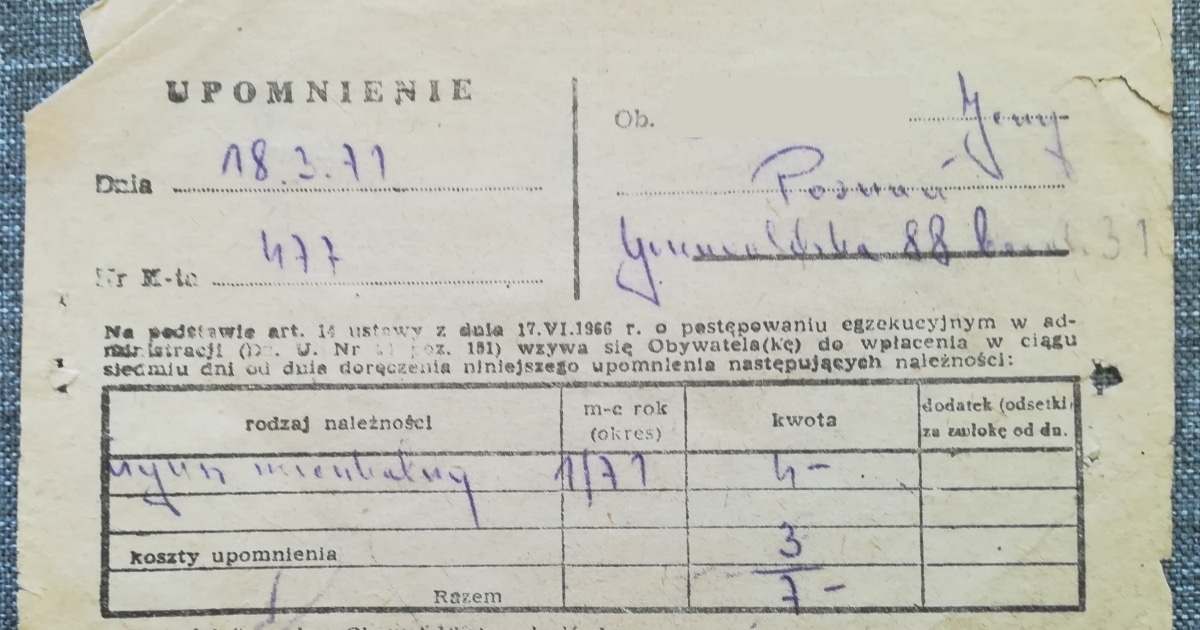 UPOMNIENIE
Dnia 18.3.71
Nr K-to 477
Ob. Jerzy
Poznań
Grunwaldzka 88 31
Na podstawie art. 14 ustawy z dnia 17.VI.1966 r. o postępowaniu egzekucyjnym w ad-
ministracji (Dz. U. Nr poz. 151) wzywa się Obywatela(kę) do wpłacenia w ciągu
siedmiu dni od dnia doręczenia niniejszego upomnienia następujących należności:
rodzaj należności
m-c rok
(okres)
kwota
dodatek (odsetki)
za zwłokę od dn.
czynsz mieszkalny 1/71 4-
koszty upomnienia 3
Razem 7-